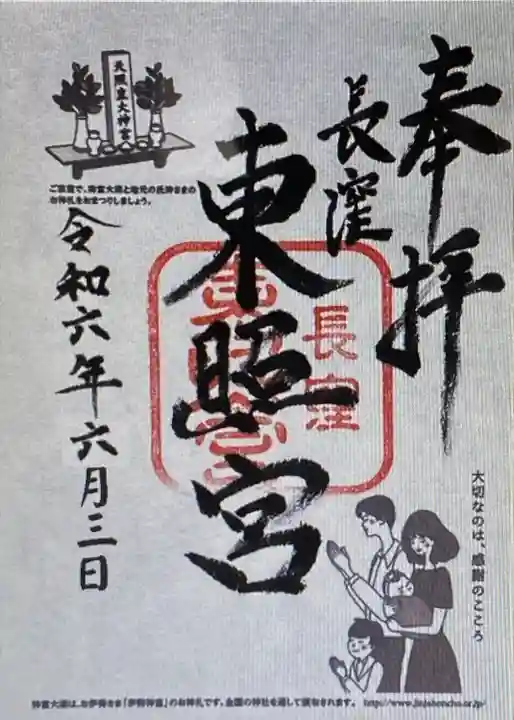 奉拝
長窪
東照宮
長窪
東照宮
令和六年六月三日
天照皇大神宮
ご家庭で、神宮大麻と地元の氏神さまの
お神札をおまつりしましょう。
大切なのは、感謝のこころ
神宮大麻は、お伊勢さま「伊勢神宮」のお神札です。全国の神社を通して頒布されます。 http://www.jinjahoncho.or.jp/